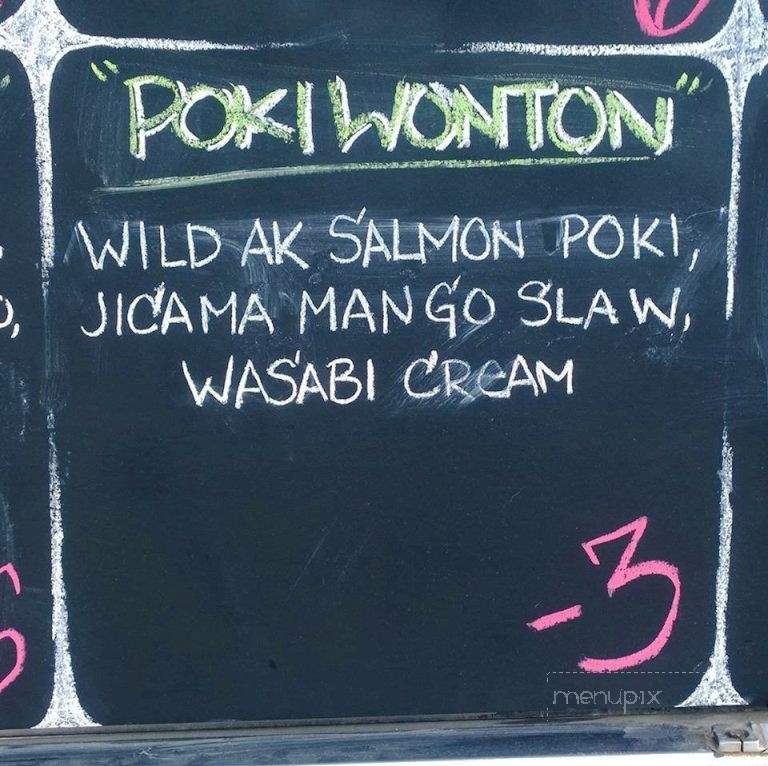 6
"POKI WONTON"
WILD AK SALMON POKI,
JICAMA MANGO SLAW,
WASABI CREAM
-3
menupix